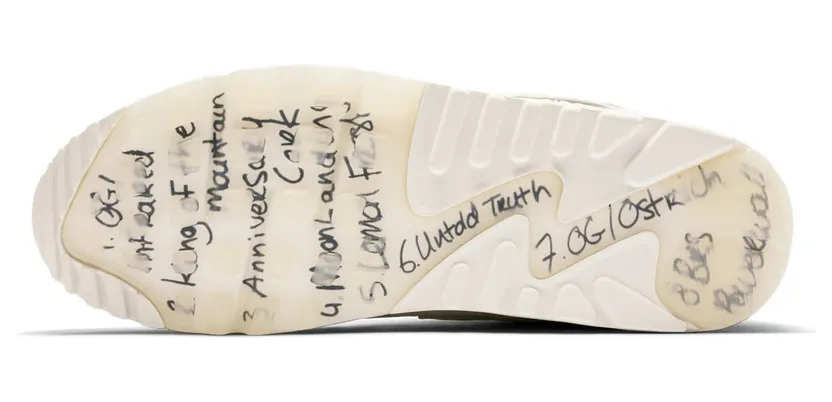 1. OG/
Infraked
2. King of the
mountain
3 Anniversary
Cork
4. Moon Landin
5. Lemon
6. Untold Truth
7. OG/Ostrich
8 Bks